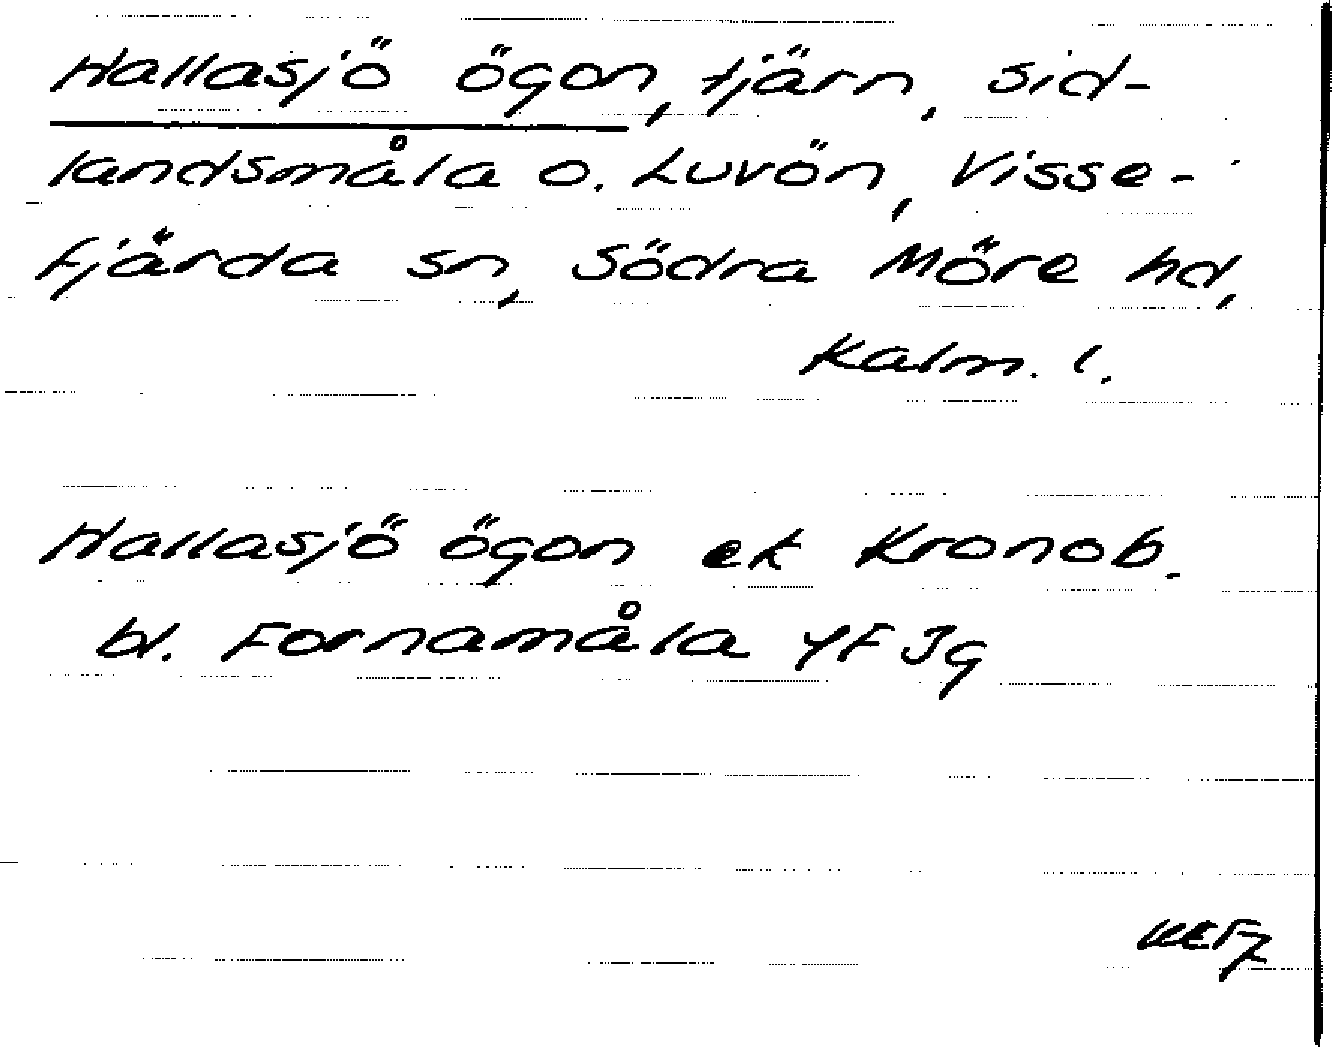 Hallasjö ögon, tjärn, Sid-
landsmåla o. Luvön, Visse-
fjärda sn, Södra Möre hd,
Kalm. l.
Hallasjö ögon ek Kronob.
bl. Fornamåla YF Jg